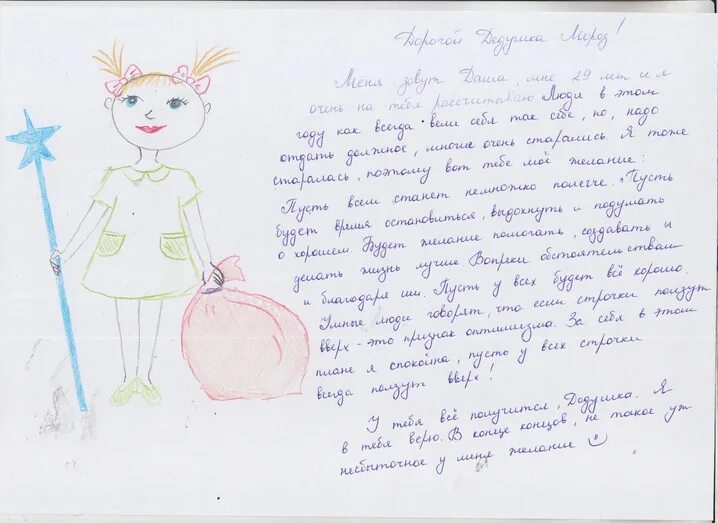 Дорогой Дедушка Мороз!
Меня зовут Даша, мне 29 лет и я
очень на тебя рассчитываю Люди в этом
году как всегда вели себя так себе, но, надо
отдать должное, многие очень старались. Я тоже
старалась, поэтому вот тебе моё желание:
Пусть всем станет немножко полегче. Пусть
будет время остановиться, выдохнуть и подумать
о хорошем. Будет желание помогать, создавать и
делать жизнь лучше Вопреки обстоятельствам
и благодаря им. Пусть у всех будет всё хорошо.
Умные люди говорят, что если строчки ползут
вверх - это признак оптимизма. За себя в этом
плане я спокойна, пусть у всех строчки
всегда ползут вверх!
У тебя всё получится, Дедушка. Я
в тебя верю. В конце концов, не такое уж
несбыточное у меня желание